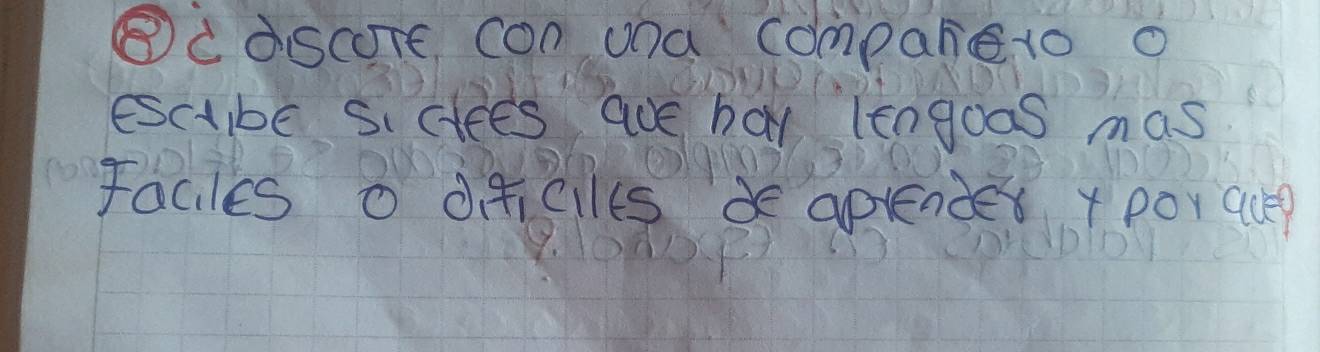 ⑧ ¿ discute con una compañero o
escribe si crees que hay lenguas mas
faciles o dificiles de aprender y por que?